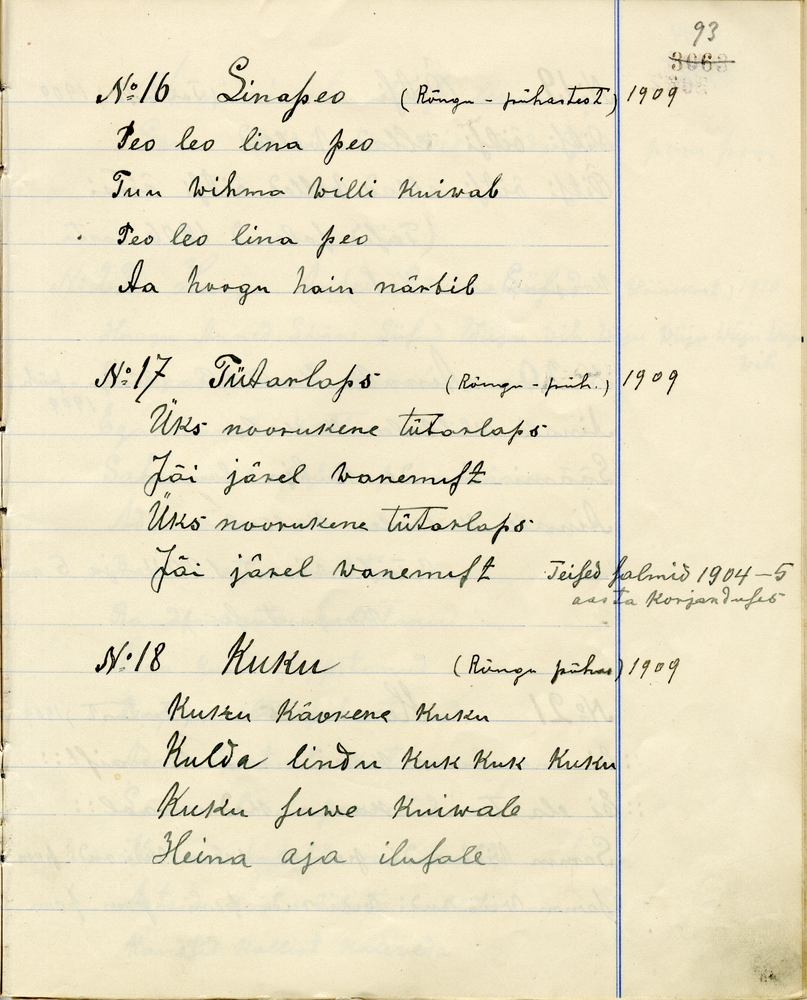 93
3663
No 16 Linapeo (Rõngu - pühastest) 1909
Peo leo lina peo
Tuu wihma willi kuiwab
Peo leo lina peo
Aa hoogu hain närbib
No 17 Tütarlaps (Rõngu - püh.) 1909
Üks noorukene tütarlaps
Jäi järel wanemist
Üks noorukene tütarlaps
Jäi järel wanemist Teised salmid 1904-5
aasta korjanduses
No 18 Kuku (Rõngu pühas) 1909
Kuku Käokene Kuku
Kulda lindu Kuk Kuk Kuku
Kuku suwe kuiwale
Heina aja ilusale